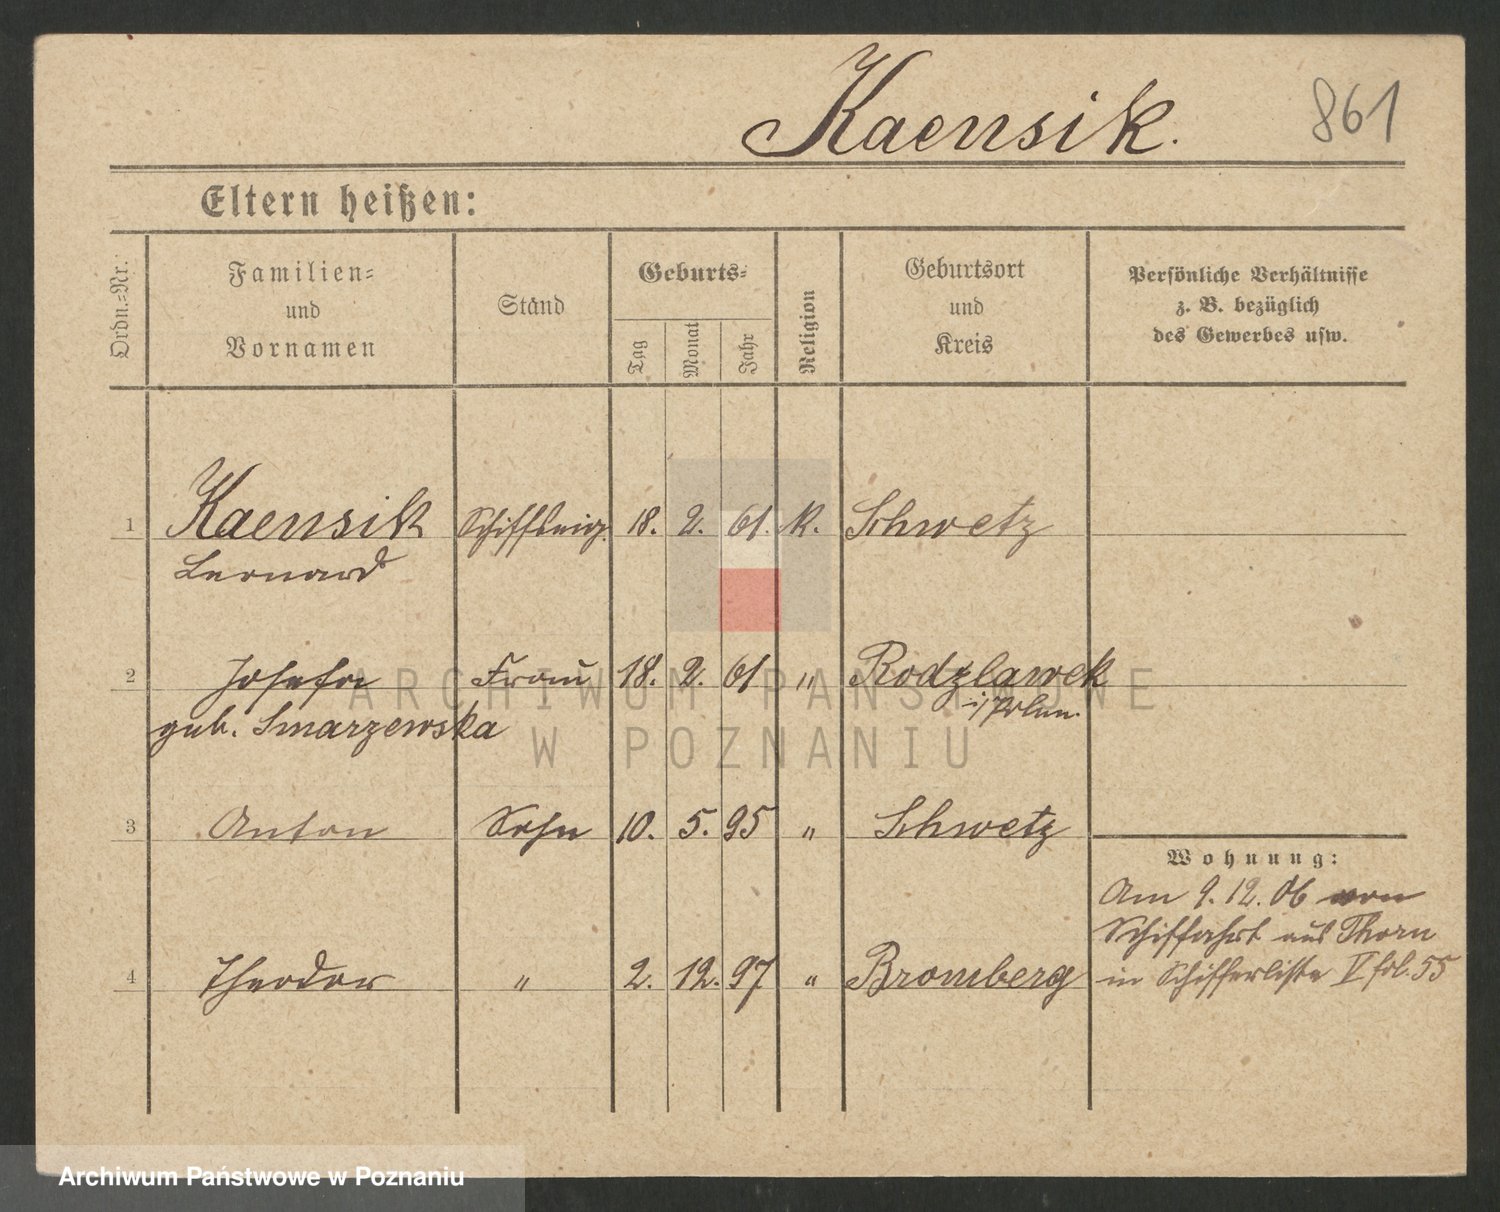 Kaensik.
861
Eltern heißen:
Ordn.-Nr.
Familien-
und
Vornamen
Stand
Geburts-
Tag
Monat
Jahr
Religion
Geburtsort
und
Kreis
Persönliche Verhältnisse
z. B. bezüglich
des Gewerbes usw.
1 Kaensik 18. 2. 61. K. Schwetz
Bernard
2 Josefa Frau 18. 2. 61 " Rodzlawek
i/Polen.
geb. Smarzewska
3 Anton Sohn 10. 5. 95 " Schwetz
Wohnung:
Am 9. 12. 06 von
Schiffahrt aus Thorn
4 Theodor " 2. 12. 97 " Bromberg
in Schifferliste V fol. 55
ARCHIWUM PAŃSTWOWE
W POZNANIU
Archiwum Państwowe w Poznaniu